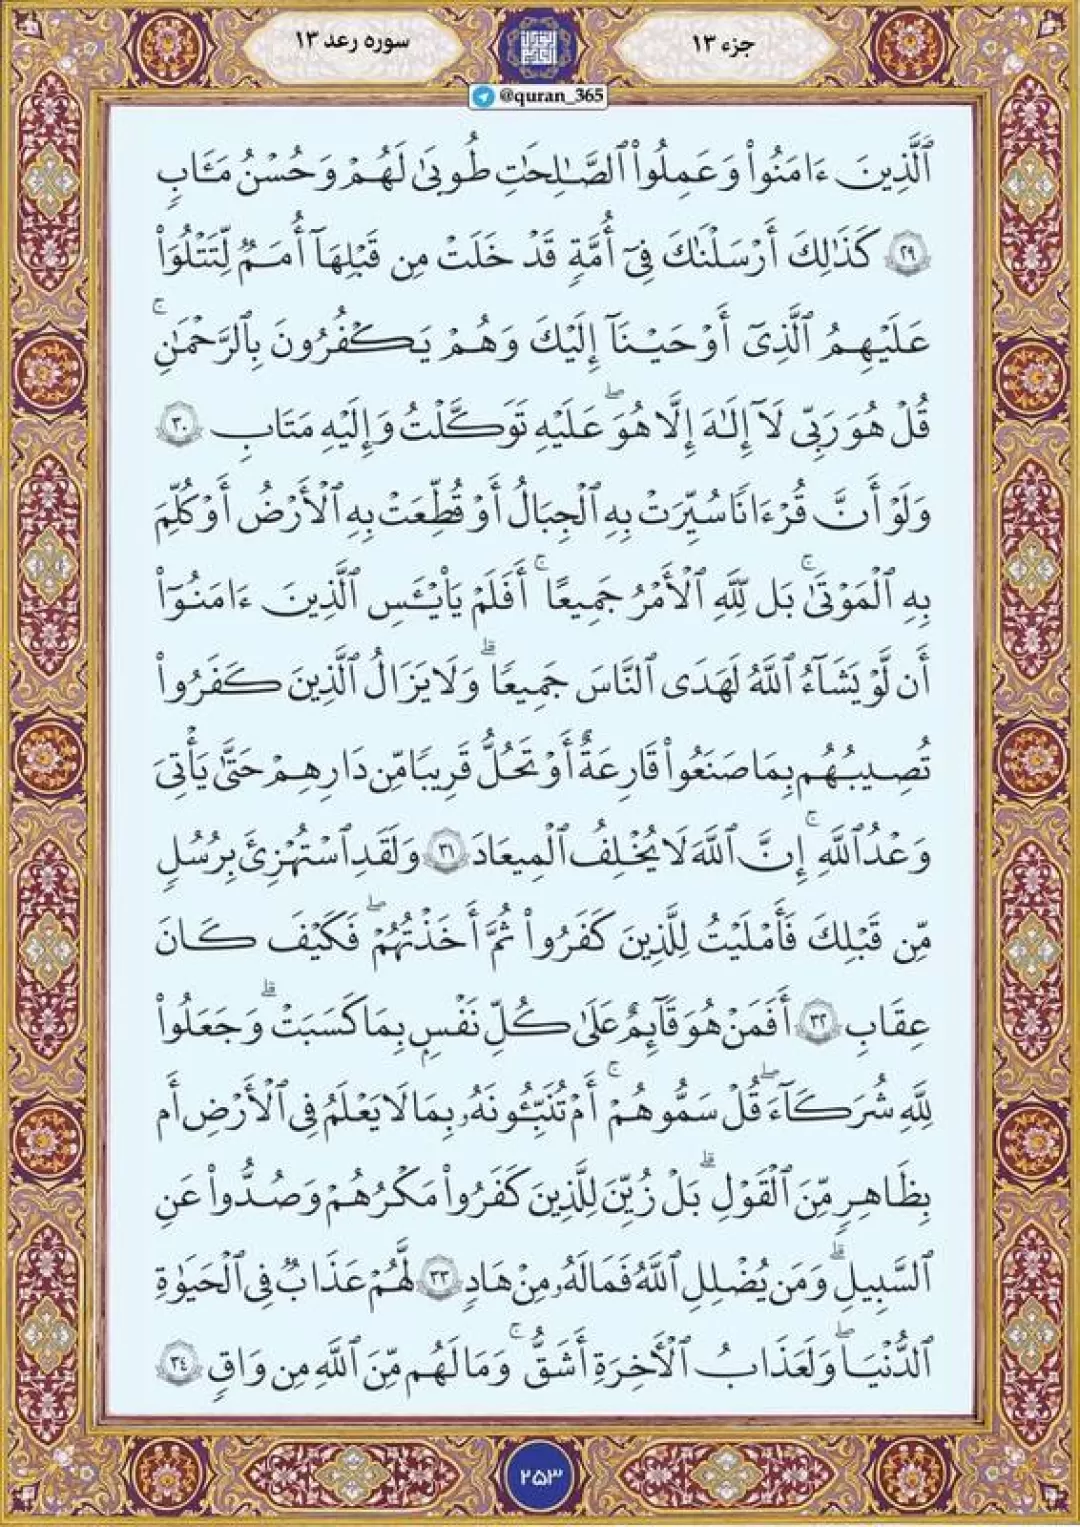 جزء ۱۳
سوره رعد ۱۳
@quran_365
ٱلَّذِينَ ءَامَنُوا۟ وَعَمِلُوا۟ ٱلصَّـٰلِحَـٰتِ طُوبَىٰ لَهُمْ وَحُسْنُ مَـَٔابٍ
﴿٢٩﴾ كَذَٰلِكَ أَرْسَلْنَـٰكَ فِىٓ أُمَّةٍ قَدْ خَلَتْ مِن قَبْلِهَآ أُمَمٌ لِّتَتْلُوَا۟
عَلَيْهِمُ ٱلَّذِىٓ أَوْحَيْنَآ إِلَيْكَ وَهُمْ يَكْفُرُونَ بِٱلرَّحْمَـٰنِ ۚ
قُلْ هُوَ رَبِّى لَآ إِلَـٰهَ إِلَّا هُوَ ۖ عَلَيْهِ تَوَكَّلْتُ وَإِلَيْهِ مَتَابِ ﴿٣٠﴾
وَلَوْ أَنَّ قُرْءَانًا سُيِّرَتْ بِهِ ٱلْجِبَالُ أَوْ قُطِّعَتْ بِهِ ٱلْأَرْضُ أَوْ كُلِّمَ
بِهِ ٱلْمَوْتَىٰ ۗ بَل لِّلَّهِ ٱلْأَمْرُ جَمِيعًا ۗ أَفَلَمْ يَا۟يْـَٔسِ ٱلَّذِينَ ءَامَنُوٓا۟
أَن لَّوْ يَشَآءُ ٱللَّهُ لَهَدَى ٱلنَّاسَ جَمِيعًا ۗ وَلَا يَزَالُ ٱلَّذِينَ كَفَرُوا۟
تُصِيبُهُم بِمَا صَنَعُوا۟ قَارِعَةٌ أَوْ تَحُلُّ قَرِيبًا مِّن دَارِهِمْ حَتَّىٰ يَأْتِىَ
وَعْدُ ٱللَّهِ ۚ إِنَّ ٱللَّهَ لَا يُخْلِفُ ٱلْمِيعَادَ ﴿٣١﴾ وَلَقَدِ ٱسْتُهْزِئَ بِرُسُلٍ
مِّن قَبْلِكَ فَأَمْلَيْتُ لِلَّذِينَ كَفَرُوا۟ ثُمَّ أَخَذْتُهُمْ ۖ فَكَيْفَ كَانَ
عِقَابِ ﴿٣٢﴾ أَفَمَنْ هُوَ قَآئِمٌ عَلَىٰ كُلِّ نَفْسٍۭ بِمَا كَسَبَتْ ۗ وَجَعَلُوا۟
لِلَّهِ شُرَكَآءَ ۖ قُلْ سَمُّوهُمْ ۚ أَمْ تُنَبِّـُٔونَهُۥ بِمَا لَا يَعْلَمُ فِى ٱلْأَرْضِ أَم
بِظَـٰهِرٍ مِّنَ ٱلْقَوْلِ ۗ بَلْ زُيِّنَ لِلَّذِينَ كَفَرُوا۟ مَكْرُهُمْ وَصُدُّوا۟ عَنِ
ٱلسَّبِيلِ ۗ وَمَن يُضْلِلِ ٱللَّهُ فَمَا لَهُۥ مِنْ هَادٍ ﴿٣٣﴾ لَّهُمْ عَذَابٌ فِى ٱلْحَيَوٰةِ
ٱلدُّنْيَا ۖ وَلَعَذَابُ ٱلْـَٔاخِرَةِ أَشَقُّ ۚ وَمَا لَهُم مِّنَ ٱللَّهِ مِن وَاقٍ ﴿٣٤﴾
۲۵۳